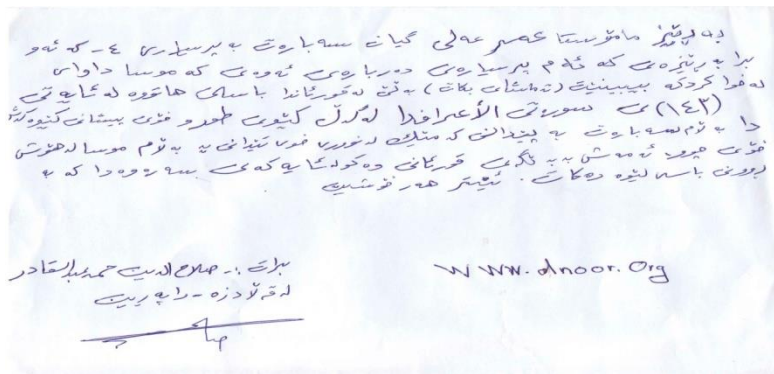 بەڕێز مامۆستا عەمر عەلی گیان سەبارەت بە پرسیاری ٤ - کە ئەو
برا بەڕێزەی کە ئەم پرسیارەی دەربارەی ئەوەی کە موسا داوای
لە خوا کرد کە بیبینێت (تەماشای بکات) بەڵێ لە قورئاندا باسی هاتووە لە ئایەتی
(١٤٣)ی سورەتی الأعرافدا لەگەڵ کێوی طور و خۆی پیشانی کێوەکەی
دا بەڵام سەبارەت بە پێدانی کە مێک لە نووری خۆی تێیدا نی یە بەڵام موسا لە هۆشی
خۆی چوو ئەمەش بە بەڵگەی قورئانی وەکو لە ئایەکەی سەرەوەدا کە بە
ڕوونی باسی لێوە دەکات. ئیتر هەر خۆشبیت
برات :- صلاح الدین حمە عبدالقادر
لە قەڵادزە - ڕاپەڕین
WWW.dnoor.Org